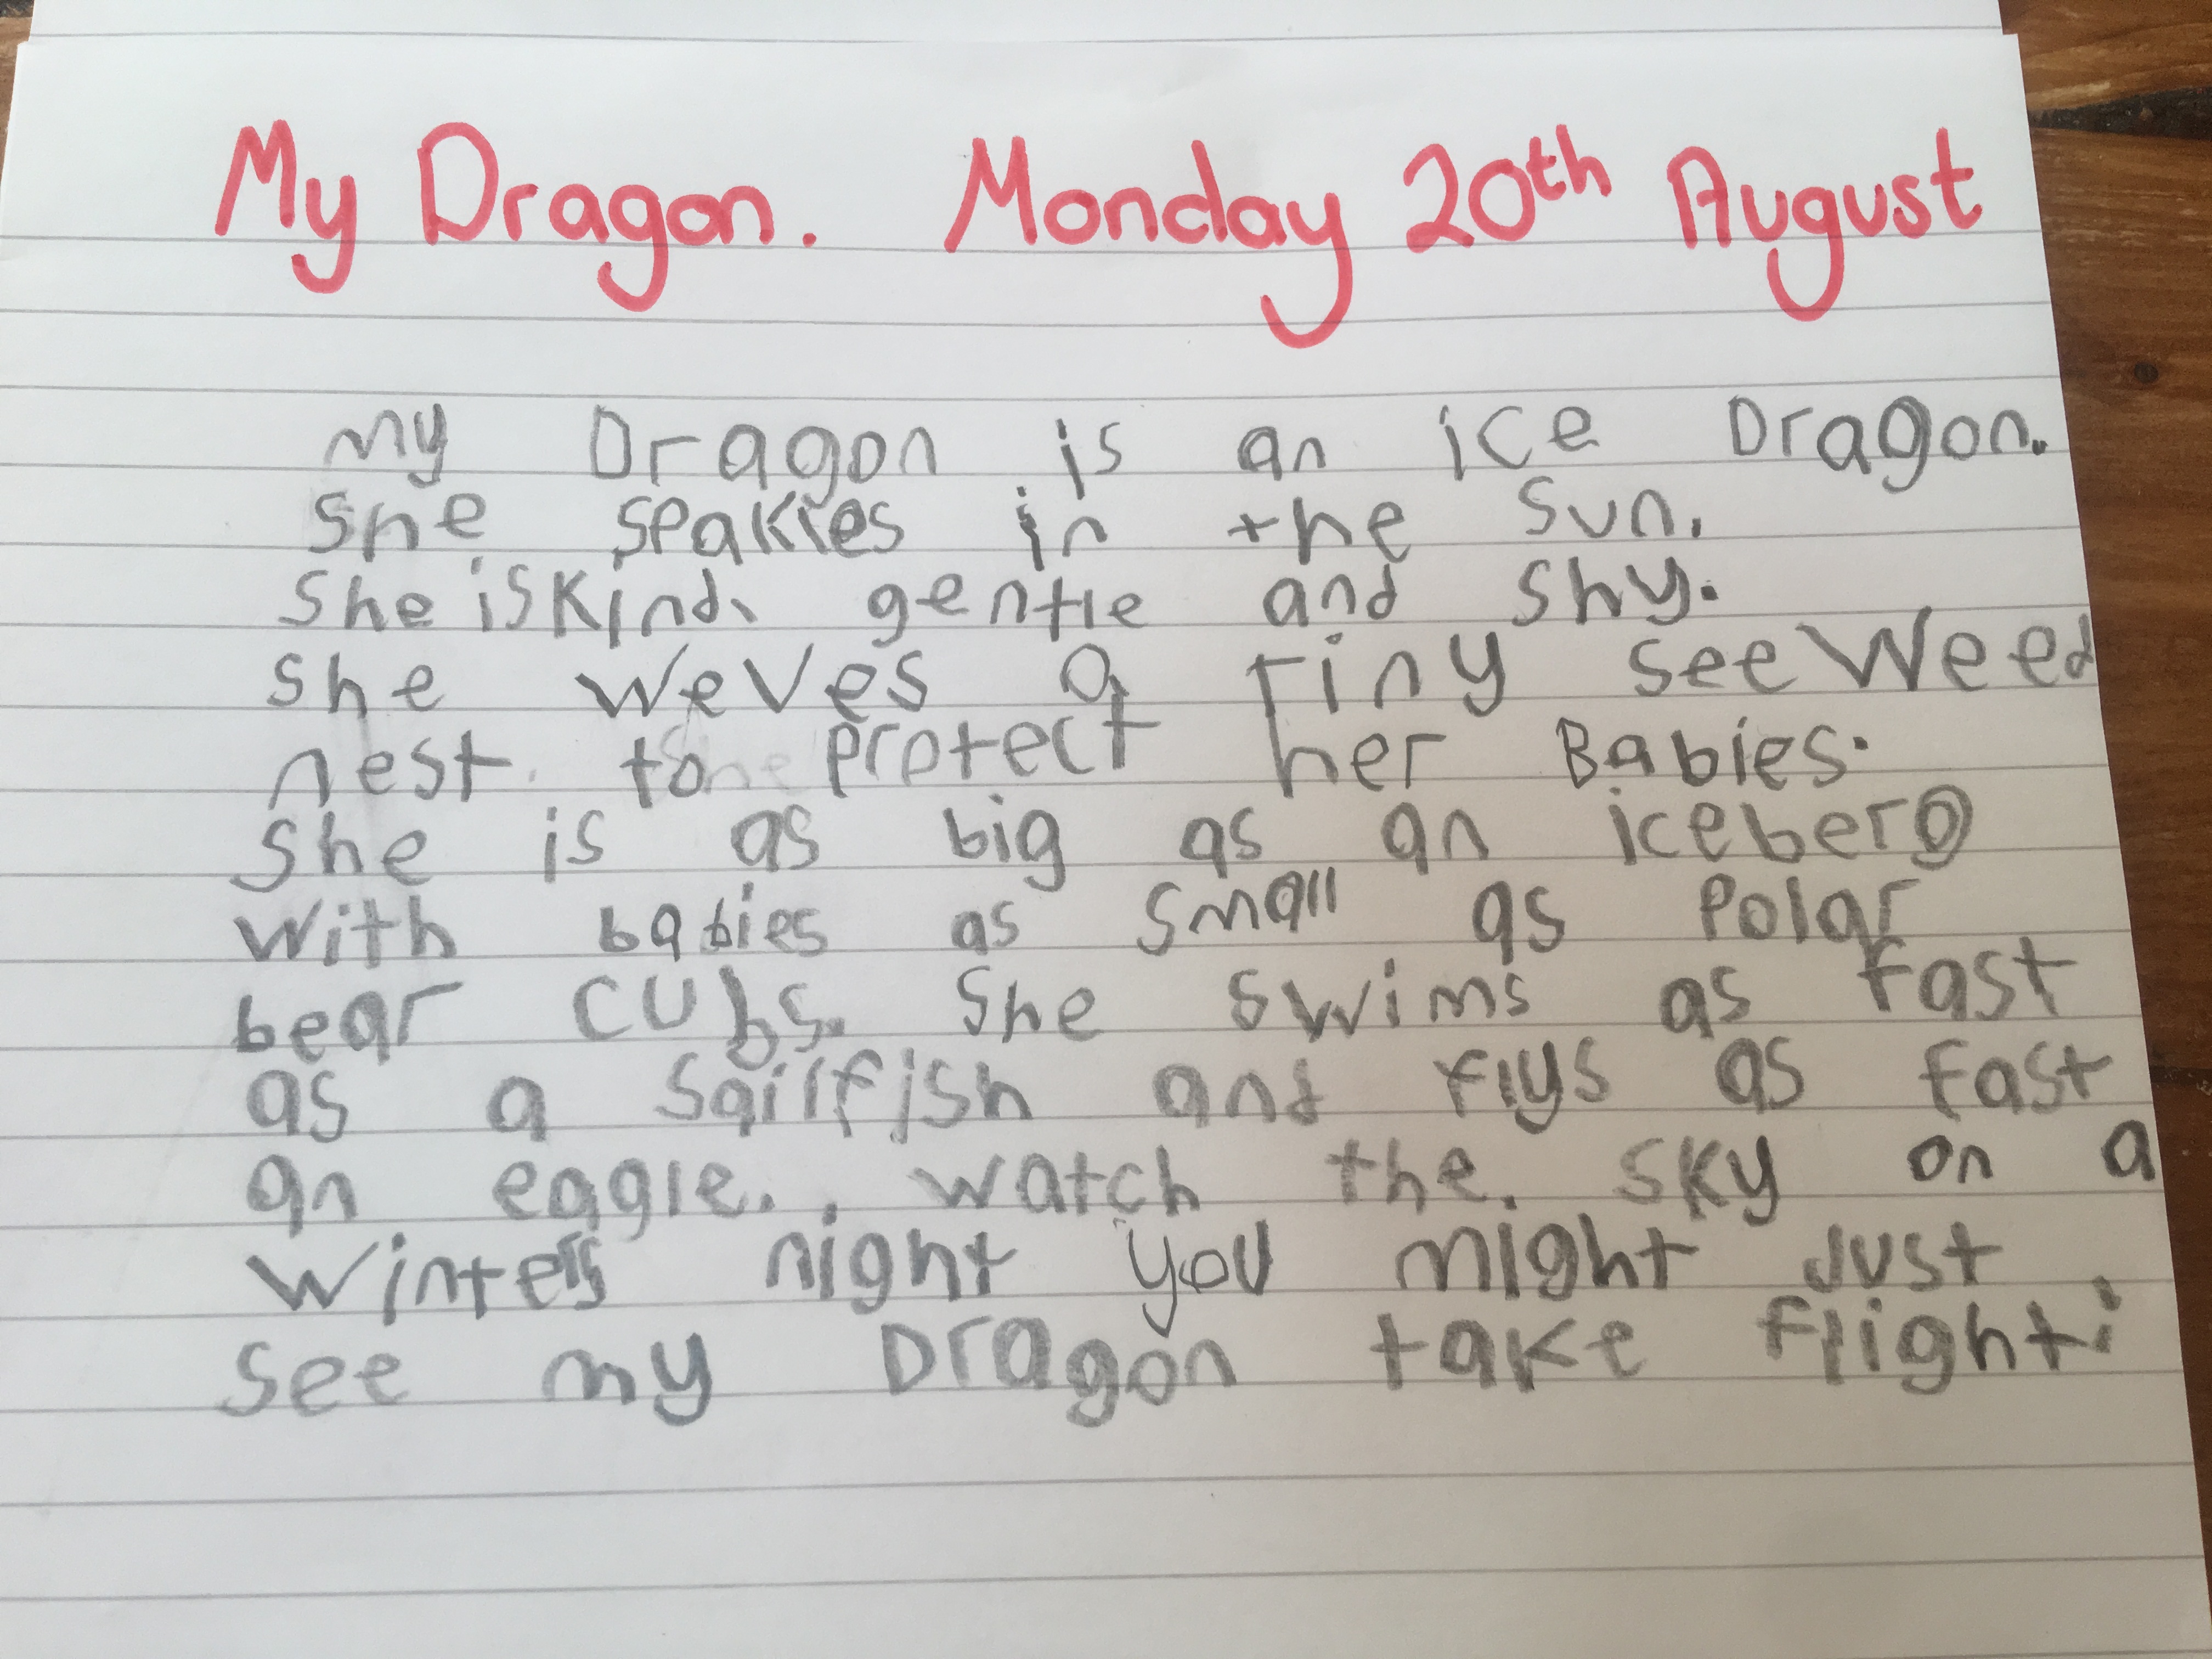 My Dragon. Monday 20th August
my Dragon is an ice Dragon.
She spakles in the sun.
She is kind, gentle and shy.
she weves a tiny see weed
nest. to protect her Babies.
She is as big as an iceberg
with babies as small as Polar
bear cubs. She swims as fast
as a sailfish and flys as fast
an eagle. . watch the. sky on a
winters night you might Just
see my Dragon take flight!